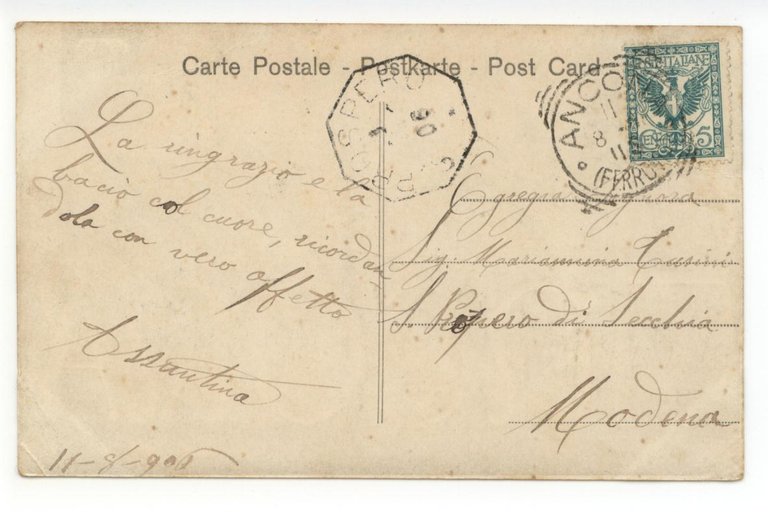 Carte Postale - Postkarte - Post Card
La ringrazio e la
bacio col cuore, ricordan
dola con vero affetto
Assuntina
11-8-906
ANCO
11
8
(FERRO
POSTE ITALIANE
CENT 5
PROSPERO
Egregia Signora
Sig. Mariannina
S. Prospero di Secchia
Modena